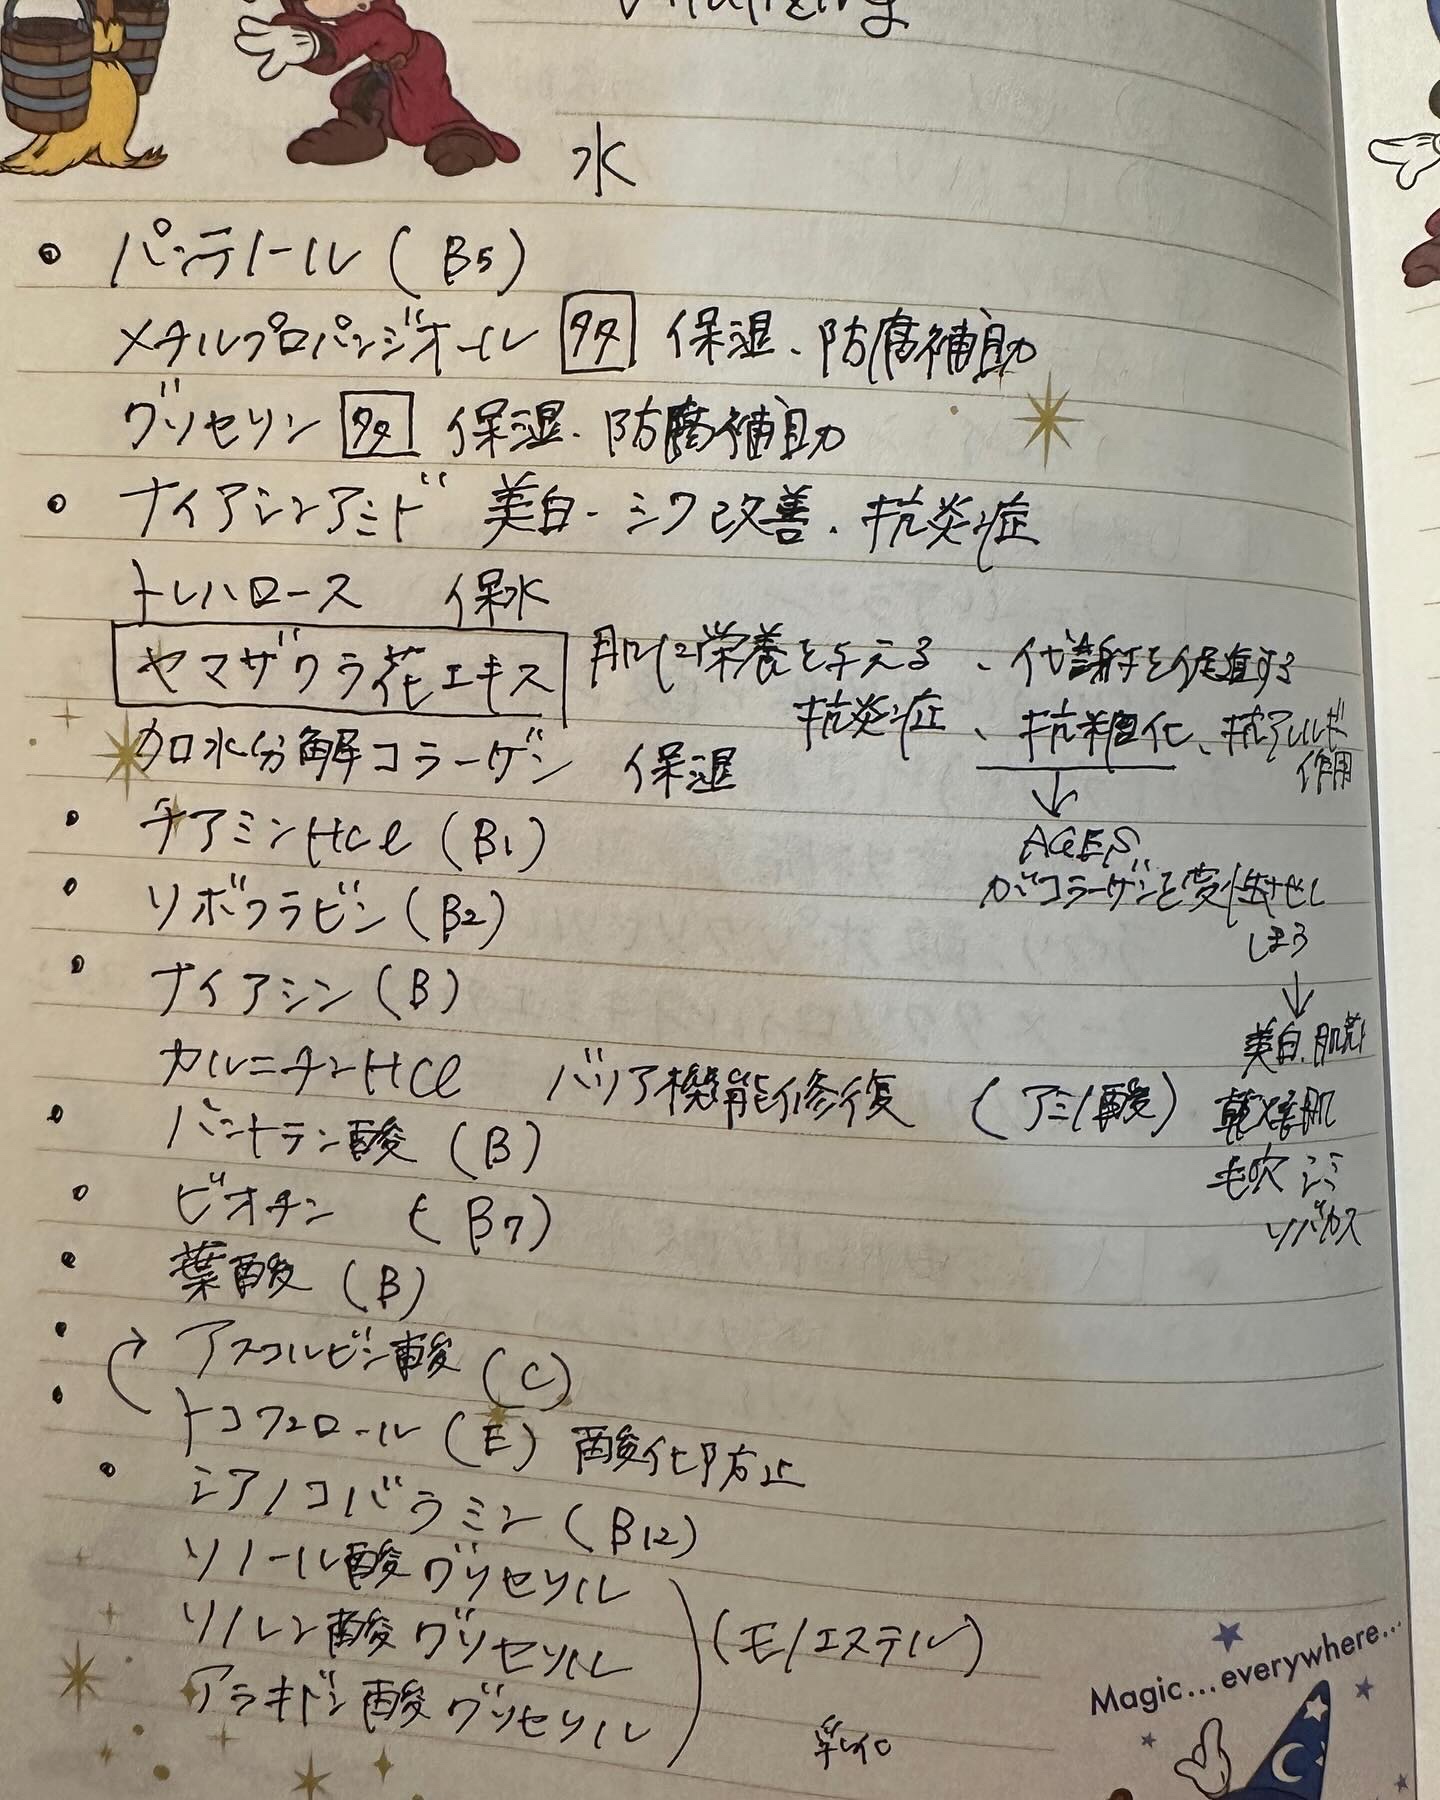 Vitalizing
水
パンテノール (B5)
メチルプロパンジオール 多 保湿、防腐補助
グリセリン 多 保湿、防腐補助
ナイアシンアミド 美白・シワ改善、抗炎症
トレハロース 保水
ヤマザクラ花エキス 肌に栄養を与える、代謝を促進する
抗炎症、抗糖化、抗アレルギー
作用
加水分解コラーゲン 保湿
↓
AGEs
がコラーゲンを変性させし
しまう
↓
美白、肌荒れ
乾燥肌
毛穴 シミ
ソバカス
チアミンHCl (B1)
リボフラビン (B2)
ナイアシン (B)
カルニチンHCl バリア機能修復 (アミノ酸)
パントテン酸 (B)
ビオチン (B7)
葉酸 (B)
アスコルビン酸 (C)
トコフェロール (E) 酸化防止
シアノコバラミン (B12)
リノール酸グリセリル
リノレン酸グリセリル (モノエステル)
アラキドン酸グリセリル
乳化
Magic...everywhere...